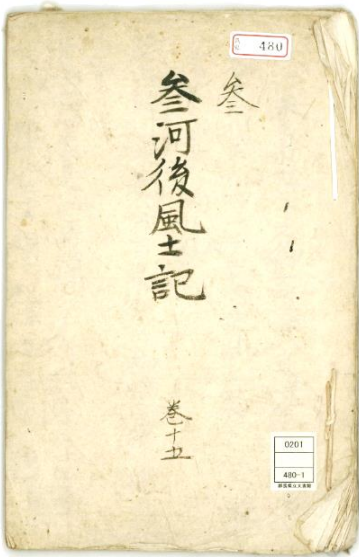 480
叄
叄河後風土記
巻十五
0201
480-1